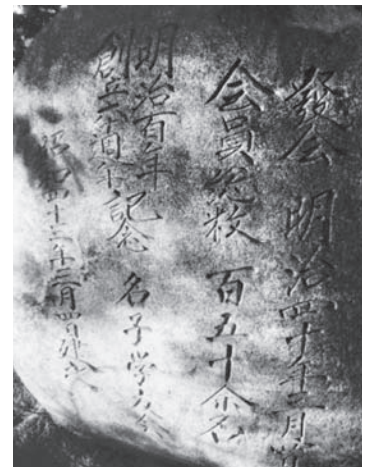 發会 明治四十年二月
会員総数 百五十余名
明治百年
創立六十周年
記念 名子学友会
昭和四十三年三月